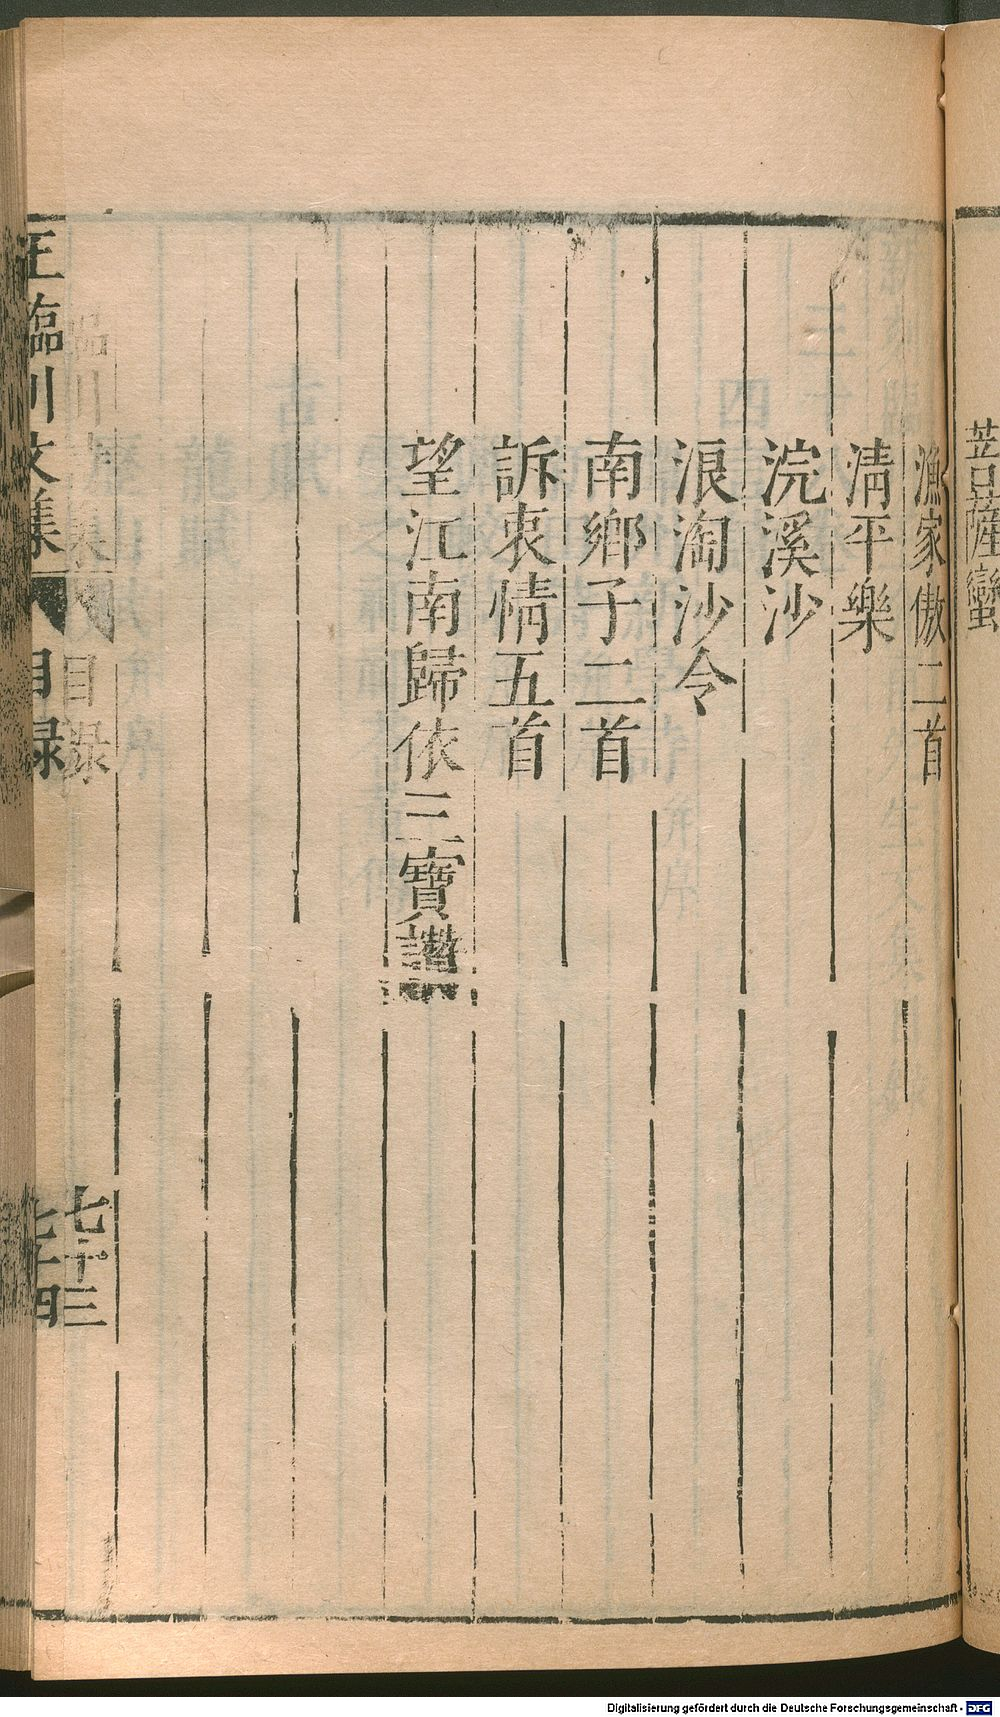 菩薩蠻
漁家傲二首
清平樂
浣溪沙
浪淘沙令
南鄉子二首
訴衷情五首
望江南歸依三寶讚
臨川文集
目录
七十三
王臨川文集
目録
七十四
Digitalisierung gefördert durch die Deutsche Forschungsgemeinschaft - DFG